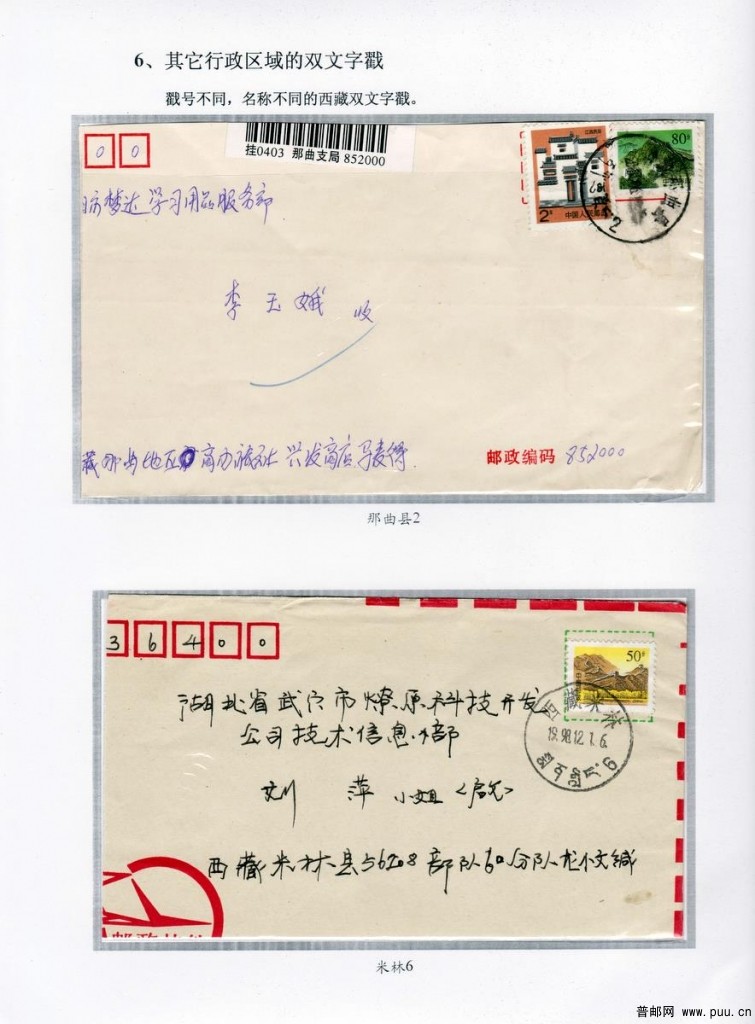 6、其它行政区域的双文字戳
戳号不同，名称不同的西藏双文字戳。
0 0
挂0403 那曲支局 852000
江西民居
2元
中国人民邮政
80分
梦达学习用品服务部
李玉娥 收
藏那曲地区 商店
邮政编码 852000
那曲县2
3 6 4 0 0
50分
湖北省武穴市燎原科技开发
公司技术信息部
刘 萍 小姐<启>
西藏米林县56208部队60分队龙小文缄
西藏米林
1998.12.1.6
6
米林6
普邮网 www.puu.cn